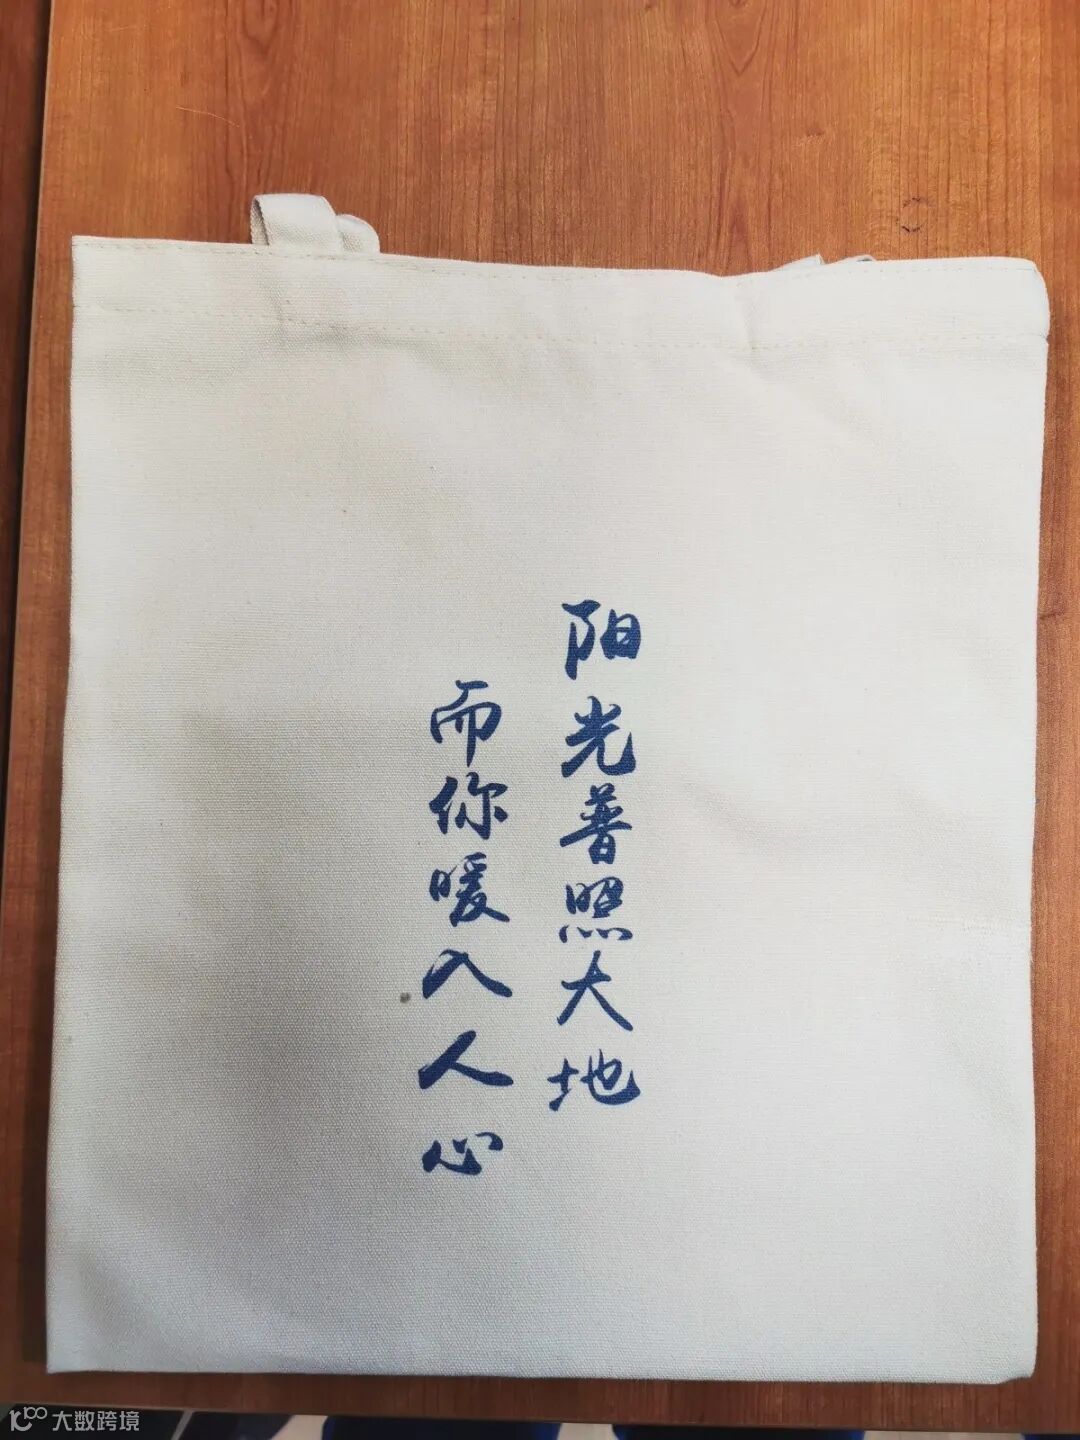 阳光普照大地
而你暖入人心
大数跨境